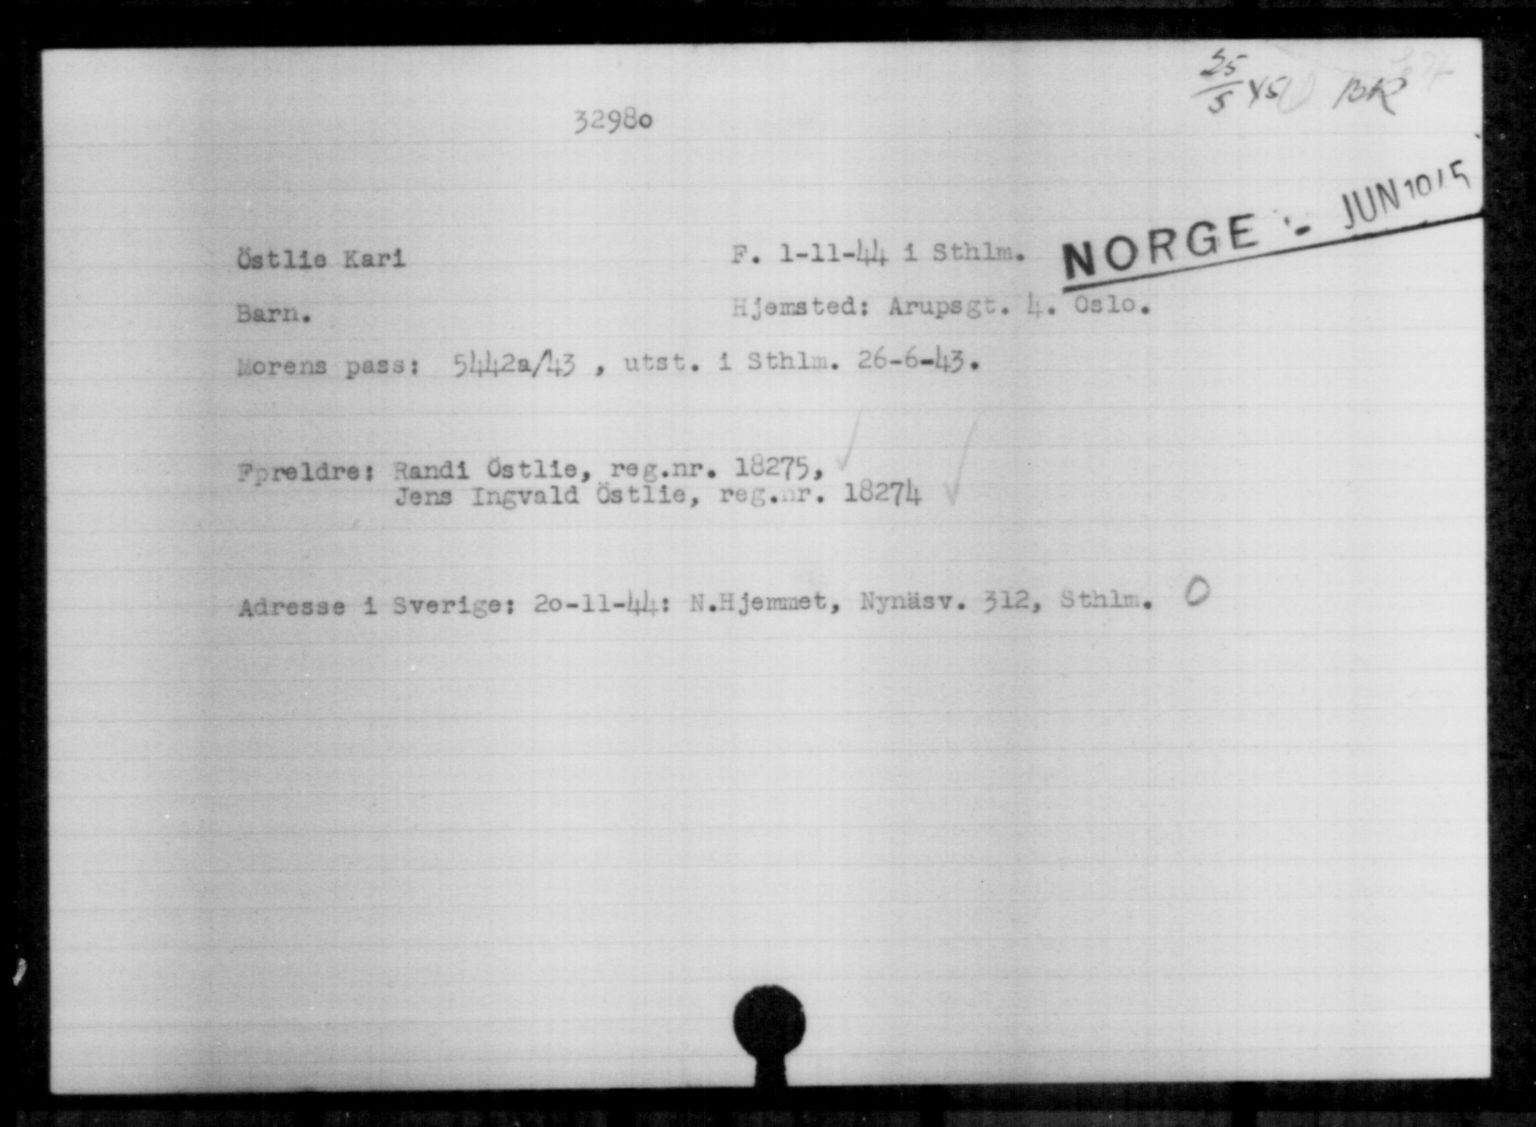 25/5 45 BR
32980
NORGE - JUN 1945
Östlie Kari F. 1-11-44 i Sthlm.
Barn. Hjemsted: Arupsgt. 4. Oslo.
Morens pass: 5442a/43 , utst. i Sthlm. 26-6-43.
Fpreldre: Randi Östlie, reg.nr. 18275,
Jens Ingvald Östlie, reg.nr. 18274
Adresse i Sverige: 20-11-44: N.Hjemmet, Nynäsv. 312, Sthlm. O